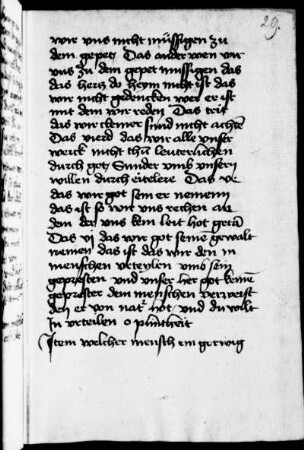 29.
wir uns nicht müssigen zu
dem gepet Das ander wen wir
uns zu dem gepet müssigen das
das hercz do heym nicht ist das
wir nicht gedencken wer er ist
mit dem wir reden Das trit
das wir kein sünd nicht achten
Das vierd das wir alle unser
werck nicht thun leuterlichen
durch got Sunder umb unsern
willen durch eytelere Das v
das wir got sein er nemenn
das ist so wir uns rechen an
den der uns kein leit hot getan
Das vj das wir got seine gewalt
nemen das ist das wir den
menschen urteylen umb sein
geprosten und unser her got keine
geprosten dem menschen verweist
den er von natur hot und du wolt
In urteilen o plintheit
Item welcher mensch ein gewig